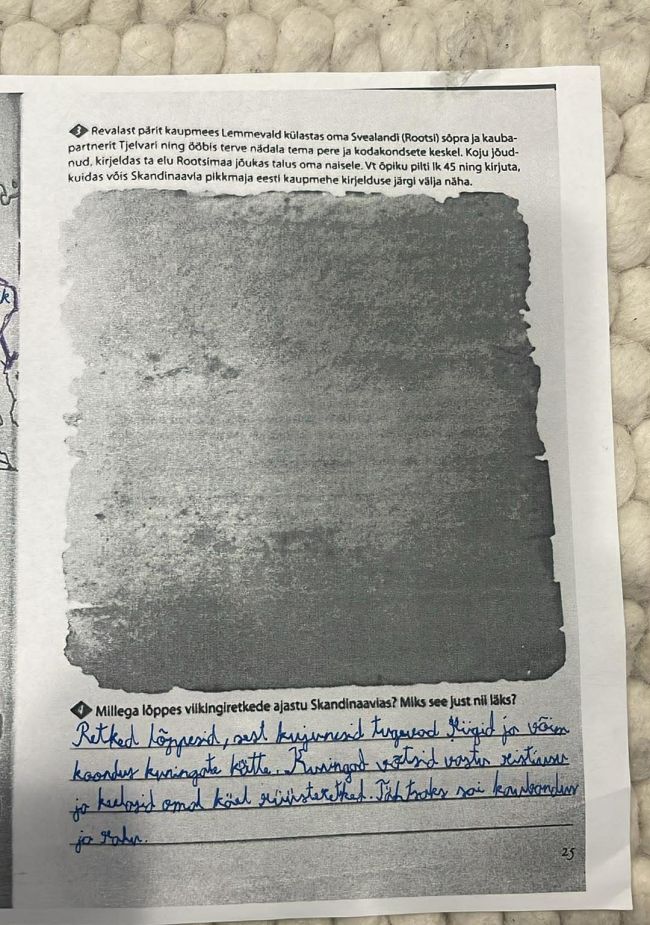 3 Revalast pärit kaupmees Lemmevald külastas oma Svealandi (Rootsi) sõpra ja kauba-
partnerit Tjelvari ning ööbis terve nädala tema pere ja kodakondsete keskel. Koju jõud-
nud, kirjeldas ta elu Rootsimaa jõukas talus oma naisele. Vt õpiku pilti lk 45 ning kirjuta,
kuidas võis Skandinaavia pikkmaja eesti kaupmehe kirjelduse järgi välja näha.
4 Millega lõppes viikingiretkede ajastu Skandinaavias? Miks see just nii läks?
Retked lõppesid, sest kujunesid tugevad riigid ja võim
koondus kuningate kätte. Kuningad võtsid vastu ristiusu
ja keelasid omal käel rüüsteretked. Tähtsaks sai kaubandus
ja rahu.
25
k